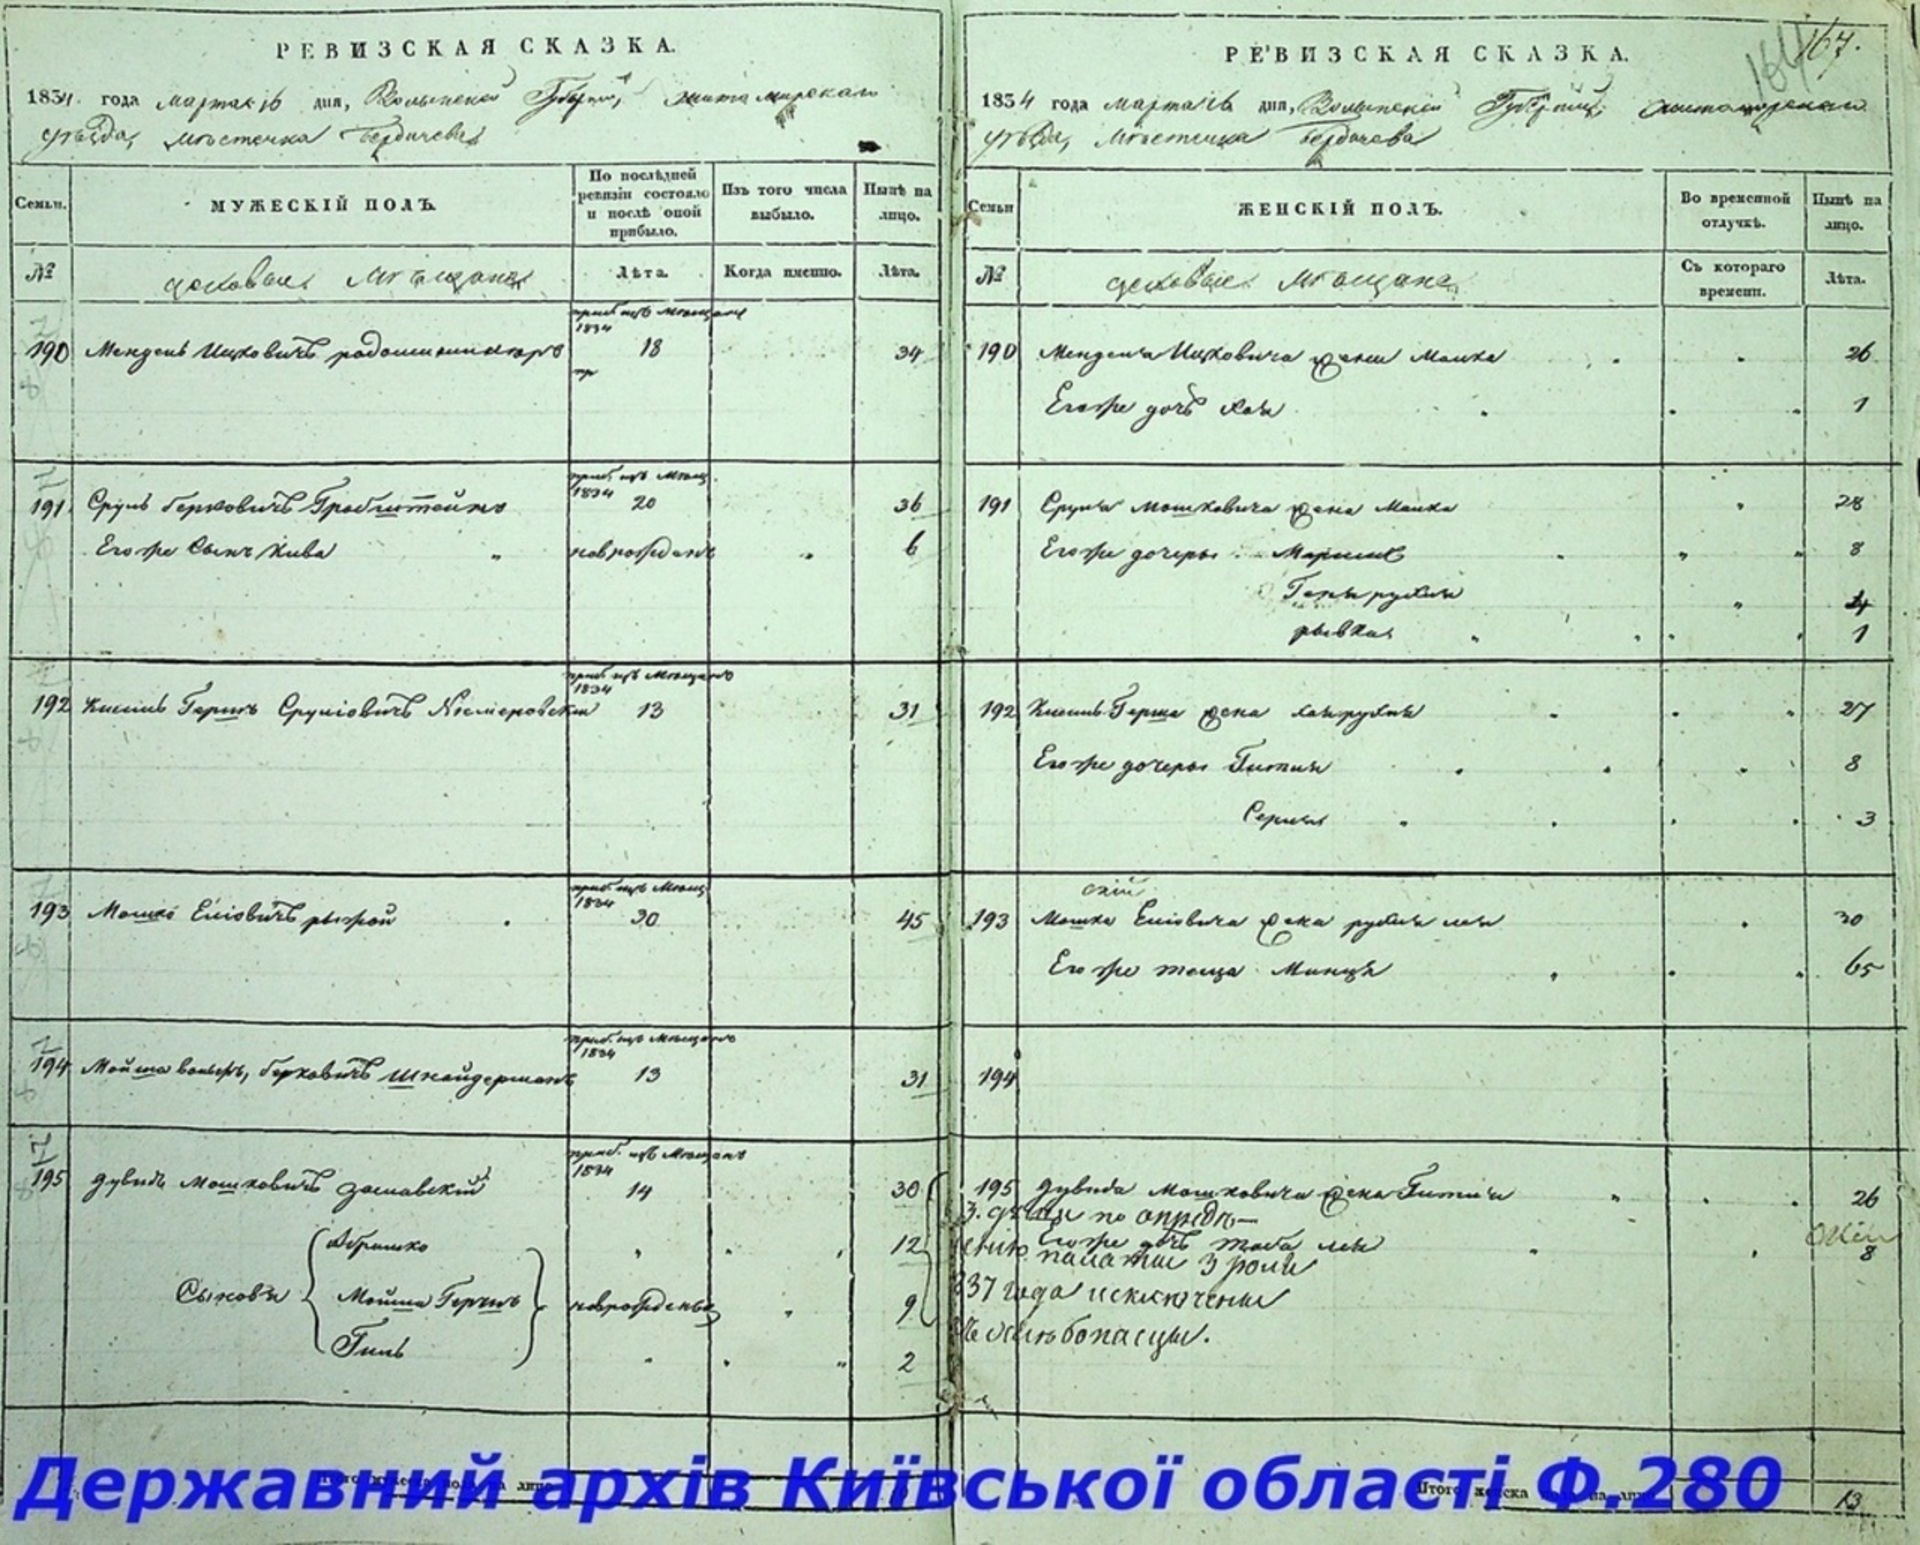 РЕВИЗСКАЯ СКАЗКА.
1834 года марта 16 дня, Волынской Губернии, житомирскаго
уѣзда, мѣстечка Бердичева
Семьи.
МУЖЕСКІЙ ПОЛЪ.
По послѣдней ревизіи состояло и послѣ оной прибыло.
Изъ того числа выбыло.
Нынѣ на лицо.
№
цеховые Мѣщане
Лѣта.
Когда именно.
Лѣта.
приб. изъ Мѣщанъ
1834
190 Мендель Ицковичъ 18 34
приб. изъ Мѣщ.
1834
191 Сруль Берковичъ Гробштейнъ 20 36
Его же Сынъ Кива новорожденъ 6
приб. изъ Мѣщанъ
1834
192 Гершъ Сруліовичъ 13 31
приб. изъ Мѣщ.
1834
193 Мошко Еліовичъ рыжой 30 45
приб. изъ Мѣщанъ
1834
194 Мойша Берковичъ Шнайдерманъ 13 31
приб. изъ Мѣщанъ
1834
195 Дувидъ Мошковичъ Заславскій 14 30
Абрамко 12
Сыновья Мойша Гершъ новорожденные 9
Гиль 2
РЕВИЗСКАЯ СКАЗКА.
167.
1834 года марта 16 дня, Волынской Губерніи, житомирскаго
уѣзда, Мѣстечка Бердичева
Семьи
ЖЕНСКІЙ ПОЛЪ.
Во временной отлучкѣ.
Нынѣ на лицо.
№
цеховые Мѣщане
Съ котораго времени.
Лѣта.
190 Менделя Ицковича жена Малка 26
Его же дочь Хая 1
191 Сруля Мошковича жена Малка 28
Его же дочеры 8
рухля 4
рывка 1
192 Герша жена Хая рухля 27
Его же дочеры Гитля 8
3
193 Мошка Еліовича жена рухля лея 30
Его же теща Минця 65
194
195 Дувида Мошковича жена Гитля 26
Его же дочь Тоба лея 8
по опредѣ-
леніи палаты 3
837 года исключены
Итого женска на лицо 13
Державний архів Київської області Ф.280